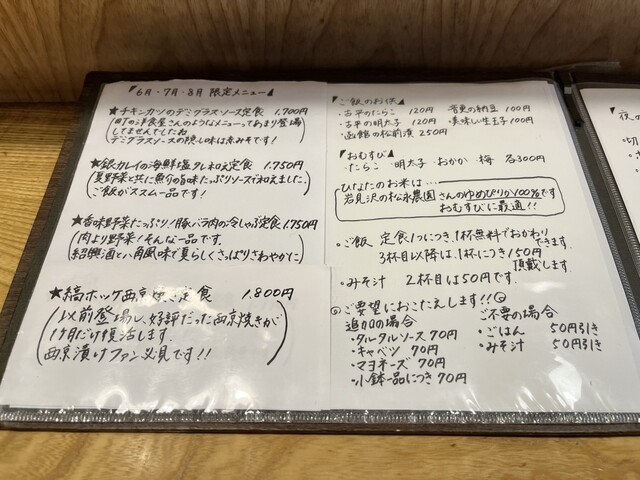 ▼6月・7月・8月 限定メニュー▲
★チキンカツのデミグラスソース定食 1.700円
町の洋食屋さんのようなメニューってあまり登場
してませんでしたね
デミグラスソースの隠し味は赤みそです!
★銀カレイの海鮮塩タレ和え定食 1.750円
夏野菜と共に魚介の旨味たっぷりソースで和えました。
ご飯がススム一品です!
★香味野菜たっぷり!豚バラ肉の冷しゃぶ定食 1.750円
肉より野菜!そんな一品です。
紹興酒と八角風味で夏らしくさっぱりさわやかに
★縞ホッケ西京焼き定食 1.800円
以前登場し、好評だった西京焼きが
1ヶ月だけ復活します。
西京漬けファン必見です!!
▼ご飯のお供▲
・古平のたらこ 120円
・古平の明太子 120円
・函館の松前漬 250円
納豆 100円
・美味しい生玉子 100円
▼おむすび▲
・たらこ・明太子・おかか・梅 各300円
ひなたのお米は…
岩見沢の松永農園さんのゆめぴりか100%です
おむすびに最適!!
・ご飯 定食1つにつき、1杯無料でおかわり
できます。
3杯目以降は、1杯につき150円
頂戴します。
・みそ汁 2杯目は50円です。
◎ご要望におこたえします!!◎
追加の場合
・タルタルソース 70円
・キャベツ 70円
・マヨネーズ 70円
・小鉢一品につき 70円
ご不要の場合
・ごはん 50円引き
・みそ汁 50円引き
▼夜の
・切